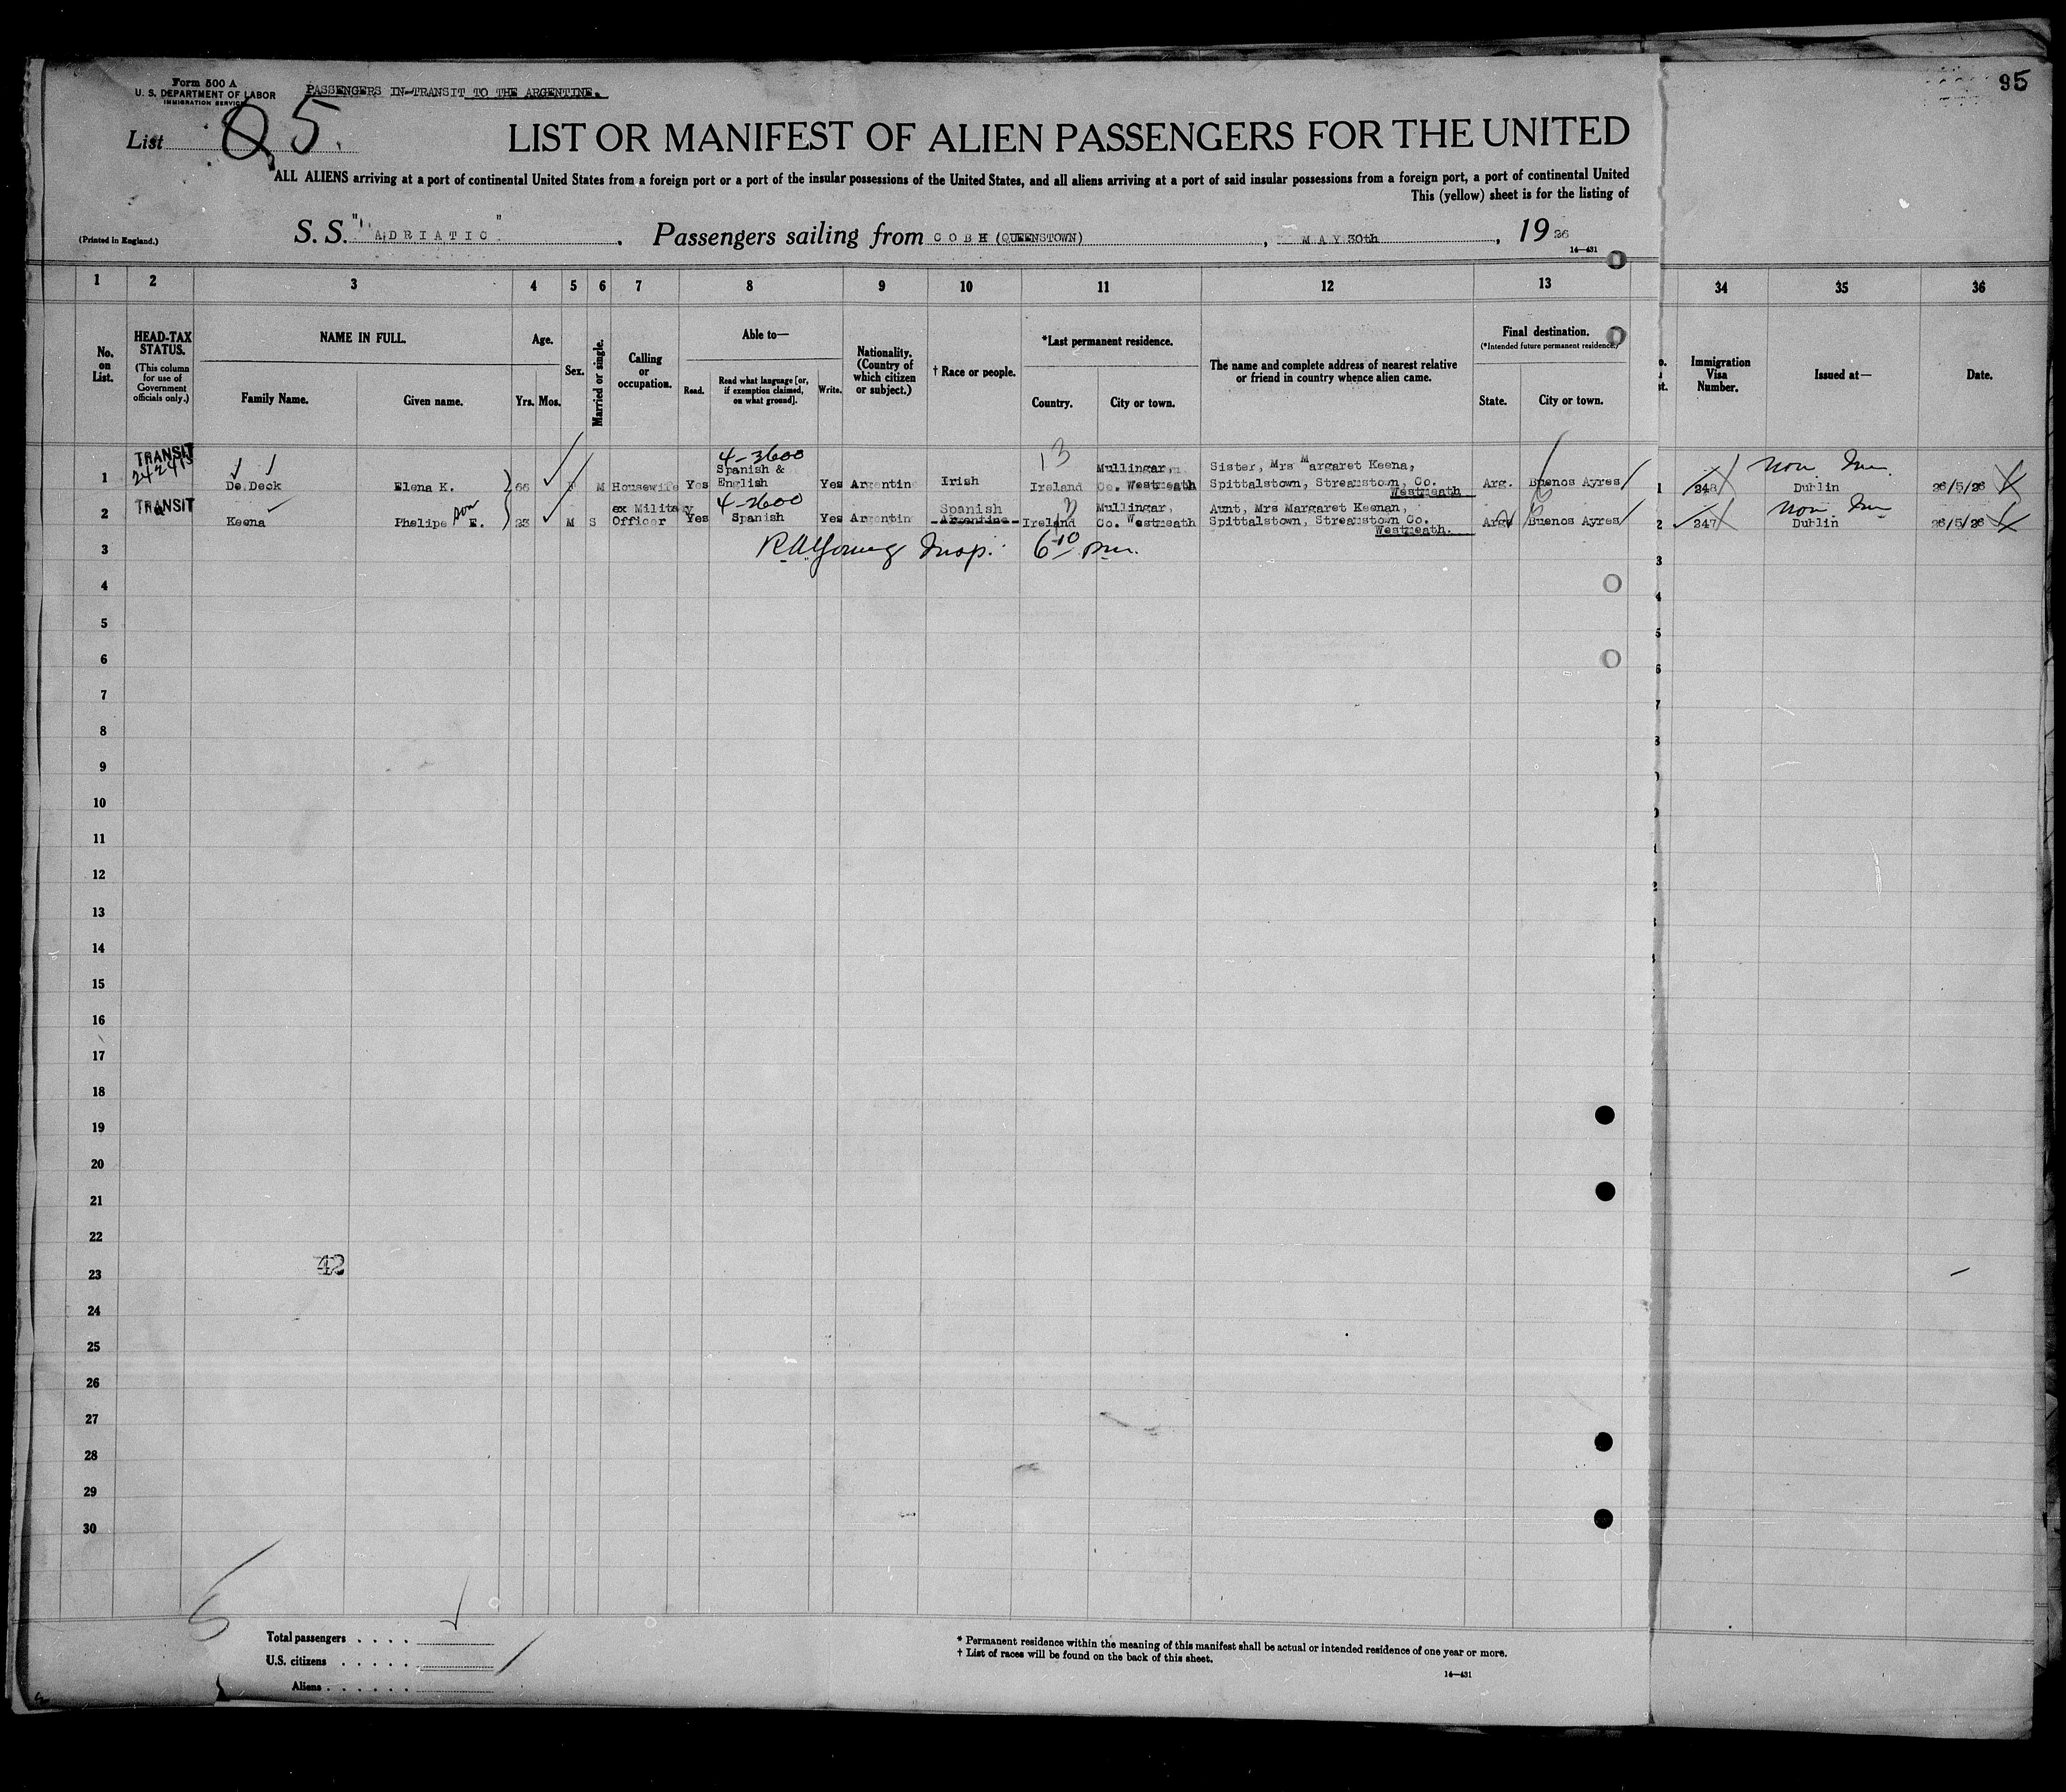 Form 500 A
U. S. DEPARTMENT OF LABOR
IMMIGRATION SERVICE
PASSENGERS IN-TRANSIT TO THE ARGENTINE.
95
List 5.
LIST OR MANIFEST OF ALIEN PASSENGERS FOR THE UNITED
ALL ALIENS arriving at a port of continental United States from a foreign port or a port of the insular possessions of the United States, and all aliens arriving at a port of said insular possessions from a foreign port, a port of continental United
This (yellow) sheet is for the listing of
(Printed in England.)
S. S. "ADRIATIC". Passengers sailing from COBH (QUEENSTOWN), MAY 30th, 1926
14—431
1 2 3 4 5 6 7 8 9 10 11 12 13 34 35 36
No. on List.
HEAD-TAX STATUS.
(This column for use of Government officials only.)
NAME IN FULL.
Family Name. Given name.
Age.
Yrs. Mos.
Sex.
Married or single.
Calling or occupation.
Able to—
Read. Read what language [or, if exemption claimed, on what ground]. Write.
Nationality. (Country of which citizen or subject.)
† Race or people.
*Last permanent residence.
Country. City or town.
The name and complete address of nearest relative or friend in country whence alien came.
Final destination.
(*Intended future permanent residence.)
State. City or town.
Immigration Visa Number.
Issued at—
Date.
TRANSIT
4-3600
13
1 De Deck Elena K. 66 F M Housewife Yes Spanish & English Yes Argentin Irish Ireland Mullingar, Co. Westmeath Sister, Mrs Margaret Keena, Spittalstown, Streamstown, Co. Westmeath Arg. Buenos Ayres 1 248 Dublin 26/5/26
TRANSIT
4-3600
2 Keena Phelipe E. son 23 M S ex Military Officer Yes Spanish Yes Argentin Spanish Argentine Ireland Mullingar, Co. Westmeath Aunt, Mrs Margaret Keenan, Spittalstown, Streamstown Co. Westmeath. Arg. Buenos Ayres 2 247 Dublin 26/5/26
3 RA Young Insp. 6 10 pm. 3
4
5
6
7
8
9
10
11
12
13
14
15
16
17
18
19
20
21
22
42
23
24
25
26
27
28
29
30
Total passengers . . . .
U.S. citizens . . . . .
Aliens . . . . . .
* Permanent residence within the meaning of this manifest shall be actual or intended residence of one year or more.
† List of races will be found on the back of this sheet.
14—431